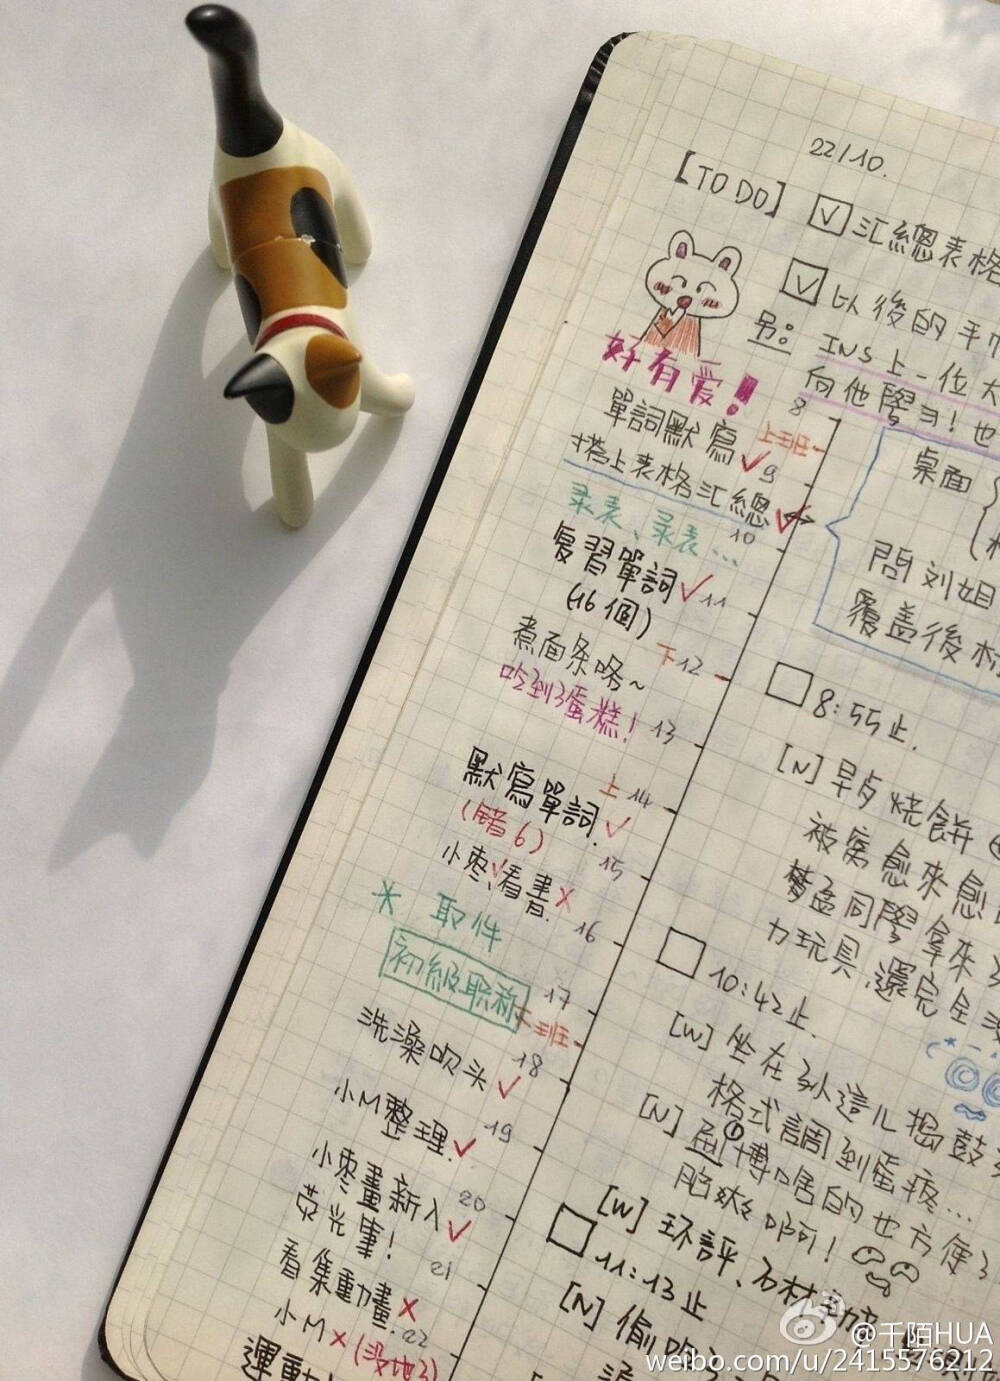 22/10.
[TO DO] ☑ 汇總表格
☑ 以後的手
另:
INS上一位大
向他膠
好有爱!
8
單詞默寫 ✓
上班
9
搭上表格汇總 ✓
桌面
录表、录表...
10
復習單詞 ✓
11
(16個)
問刘姐
覆盖後
煮面条咯~
下 12
吃到了蛋糕!
13
□ 8:55止.
[N] 早点烧餅
被窝愈來愈
默寫單詞. ✓
上 14
(錯6)
15
同膠拿來
小枣✓、看書 ×
力玩具,還完全
16
* 取件
□ 10:42止.
初級职称
17
下班
[W] 坐在 這儿搗鼓
格式調到蛋疼...
洗澡吹头 ✓
18
[N] 博啥的也方便
小M整理. ✓
19
啊!
[W] 环評、石材
小枣畫新入 ✓
20
荧光筆!
□ 11:13止
21
[N] 偷吃
看集動畫 ×
22
小M × (没地了)
運動
@千陌HUA
weibo.com/u/2415576212